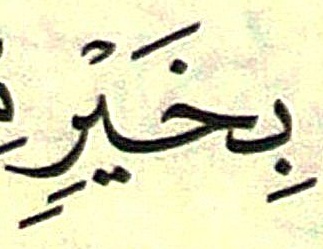 بِخَيْرٍ